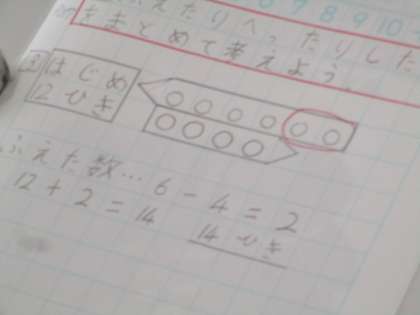 ふえたりへったりした
をまとめて考えよう。
はじめ
12ひき
ふえた数…6－4＝2
12＋2＝14
14ひき